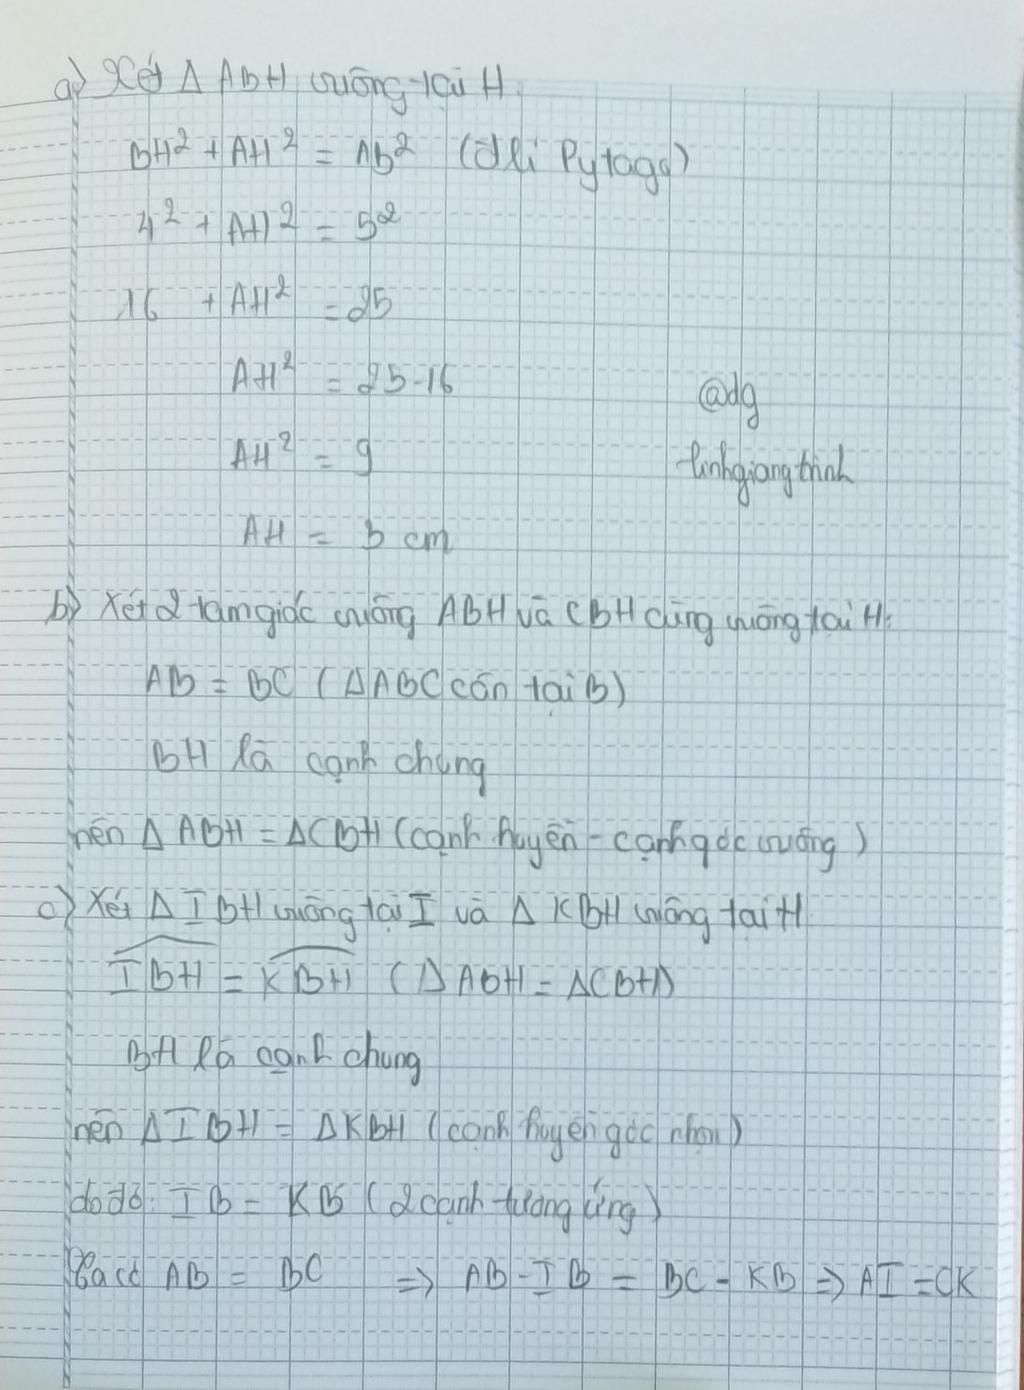 a) Xét Δ ABH vuông tại H.
BH² + AH² = AB² (đ lí Pytago)
4² + AH² = 5²
16 + AH² = 25
AH² = 25-16
@dg
AH² = 9
linhgiangtrinh
AH = 3 cm
b) Xét 2 tam giác vuông ABH và CBH cùng vuông tại H:
AB = BC (ΔABC cân tại B)
BH là cạnh chung
nên Δ ABH = ΔCBH (cạnh huyền - cạnh góc vuông)
c) Xét Δ IBH vuông tại I và Δ KBH vuông tại H
\widehat{IBH} = \widehat{KBH} (Δ ABH = ΔCBH)
BH là cạnh chung
nên ΔIBH = ΔKBH (cạnh huyền góc nhọn)
do đó: IB = KB (2 cạnh tương ứng)
Ta có AB = BC => AB - IB = BC - KB => AI = CK